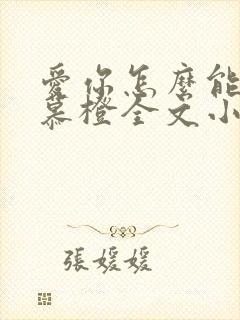 愛你怎麼能
慕橙全文小
張媛媛